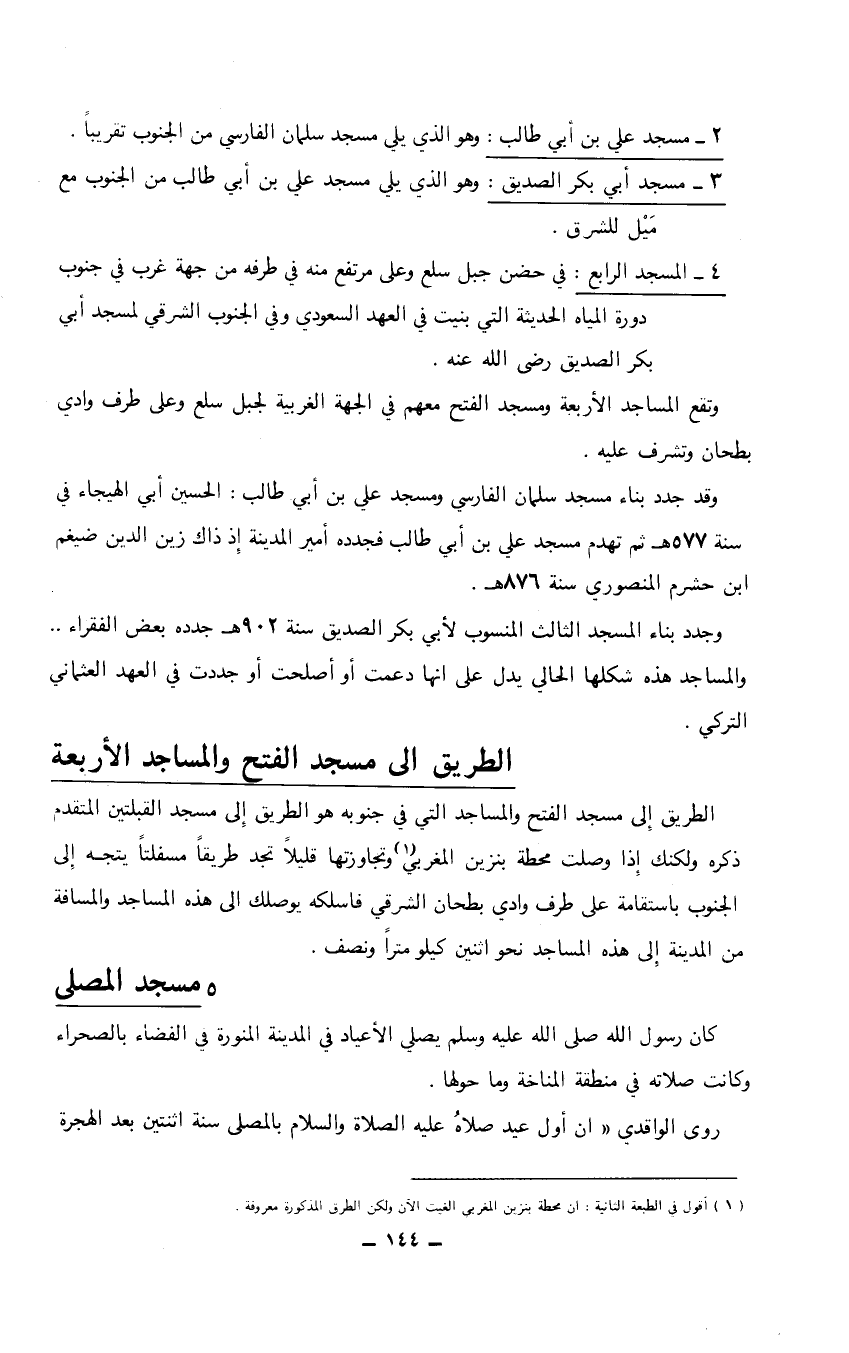 ٢ ـ مسجد علي بن أبي طالب : وهو الذي يلي مسجد سلمان الفارسي من الجنوب تقريباً .
٣ ـ مسجد أبي بكر الصديق : وهو الذي يلي مسجد علي بن أبي طالب من الجنوب مع
مَيْل للشرق .
٤ ـ المسجد الرابع : في حضن جبل سلع وعلى مرتفع منه في طرفه من جهة غرب في جنوب
دورة المياه الحديثة التي بنيت في العهد السعودي وفي الجنوب الشرقي لمسجد أبي
بكر الصديق رضى الله عنه .
وتقع المساجد الأربعة ومسجد الفتح معهم في الجهة الغربية لجبل سلع وعلى طرف وادي
بطحان وتشرف عليه .
وقد جدد بناء مسجد سلمان الفارسي ومسجد علي بن أبي طالب : الحسين أبي الهيجاء في
سنة ٥٧٧هـ ثم تهدم مسجد علي بن أبي طالب فجدده أمير المدينة إذ ذاك زين الدين ضيغم
ابن حشرم المنصوري سنة ٨٧٦هـ .
وجدد بناء المسجد الثالث المنسوب لأبي بكر الصديق سنة ٩٠٢هـ جدده بعض الفقراء ..
والمساجد هذه شكلها الحالي يدل على انها دعمت أو أصلحت أو جددت في العهد العثماني
التركي .
الطريق الى مسجد الفتح والمساجد الأربعة
الطريق إلى مسجد الفتح والمساجد التي في جنوبه هو الطريق إلى مسجد القبلتين المتقدم
ذكره ولكنك إذا وصلت محطة بنزين المغربي(١) وتجاوزتها قليلاً تجد طريقاً مسفلتاً يتجـه إلى
الجنوب باستقامة على طرف وادي بطحان الشرقي فاسلكه يوصلك الى هذه المساجد والمسافة
من المدينة إلى هذه المساجد نحو اثنين كيلو متراً ونصف .
٥ مسجد المصلى
كان رسول الله صلى الله عليه وسلم يصلي الأعياد في المدينة المنورة في الفضاء بالصحراء
وكانت صلاته في منطقة المناخة وما حولها .
روى الواقدي « ان أول عيد صلاهُ عليه الصلاة والسلام بالمصلى سنة اثنتين بعد الهجرة
( ١ ) أقول في الطبعة الثانية : ان محطة بنزين المغربي الغيت الآن ولكن الطرق المذكورة معروفة .
ـ ١٤٤ ـ